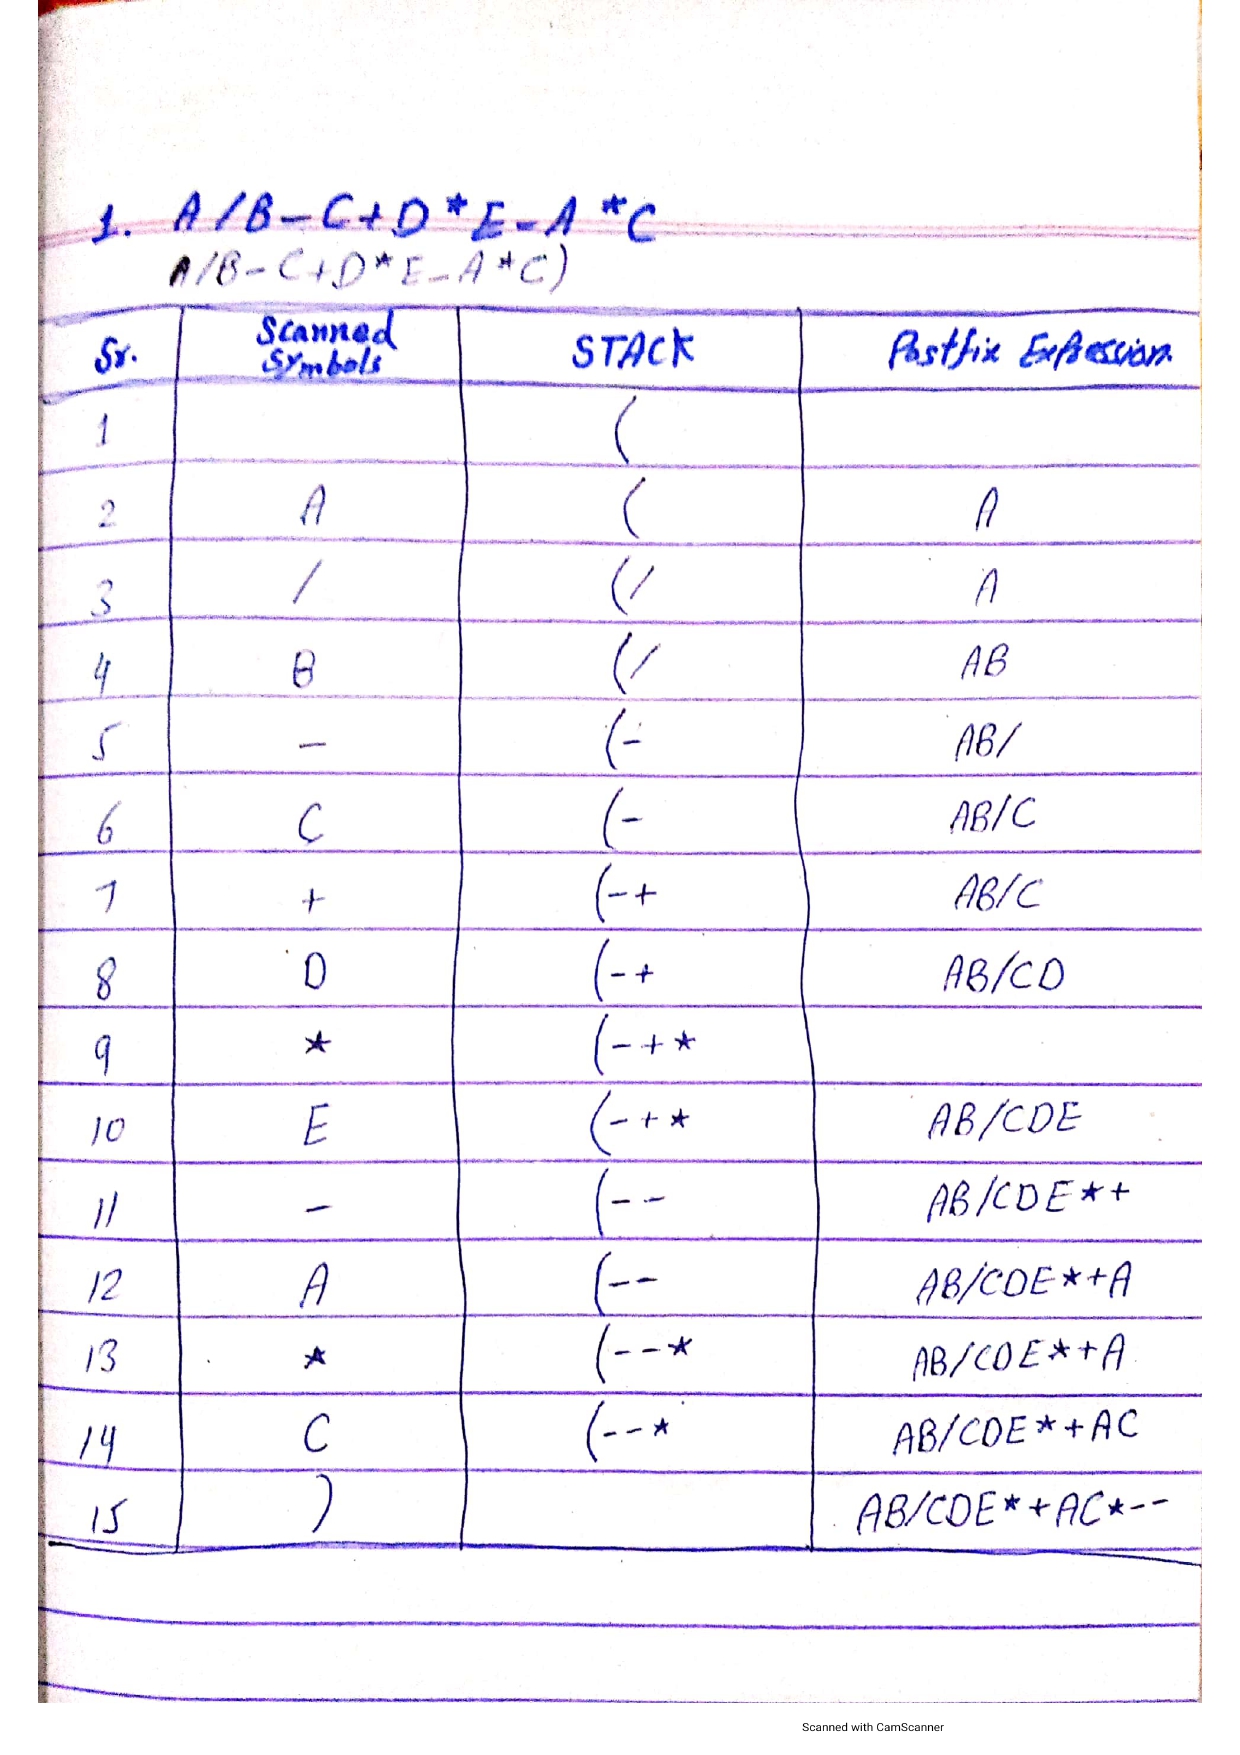 1. A/B-C+D*E-A*C
A/B-C+D*E-A*C)
Sr. Scanned Symbols STACK Postfix Expression
1 (
2 A ( A
3 / (/ A
4 B (/ AB
5 - (- AB/
6 C (- AB/C
7 + (-+ AB/C
8 D (-+ AB/CD
9 * (-+*
10 E (-+* AB/CDE
11 - (-- AB/CDE*+
12 A (-- AB/CDE*+A
13 * (--* AB/CDE*+A
14 C (--* AB/CDE*+AC
15 ) AB/CDE*+AC*--
Scanned with CamScanner